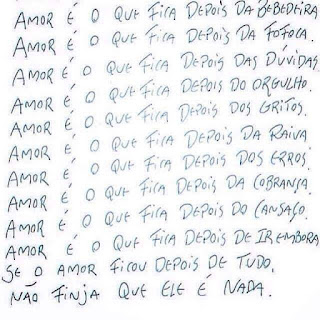 AMOR É O QUE FICA DEPOIS DA BEBEDEIRA
AMOR É O QUE FICA DEPOIS DA FOFOCA.
AMOR É O QUE FICA DEPOIS DAS DÚVIDAS
AMOR É O QUE FICA DEPOIS DO ORGULHO.
AMOR É O QUE FICA DEPOIS DOS GRITOS.
AMOR É O QUE FICA DEPOIS DA RAIVA
AMOR É O QUE FICA DEPOIS DOS ERROS.
AMOR É O QUE FICA DEPOIS DA COBRANÇA.
AMOR É O QUE FICA DEPOIS DO CANSAÇO.
AMOR É O QUE FICA DEPOIS DE IR EMBORA
SE O AMOR FICOU DEPOIS DE TUDO,
NÃO FINJA QUE ELE É NADA.